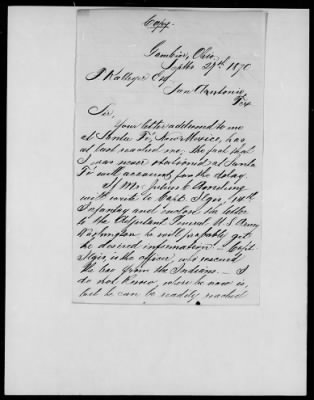 Copy.
Gambier, Ohio
Septbr 27th 1870
P Esq
San Antonio
Tex
Sir,
Your letter addressed to me
at Santa Fé, New Mexico, has
at last reached me, the fact that
I was never stationed at Santa
Fé will account for the delay.
If Mr. Julius
will write to Capt. 14th
Infantry and enclose the letter
to the Adjutant General U S Army
Washington he will probably get
the desired information — Capt.
is the officer, who rescued
the boy from the Indians. — I
do not know, where he now is,
but he can be readily reached